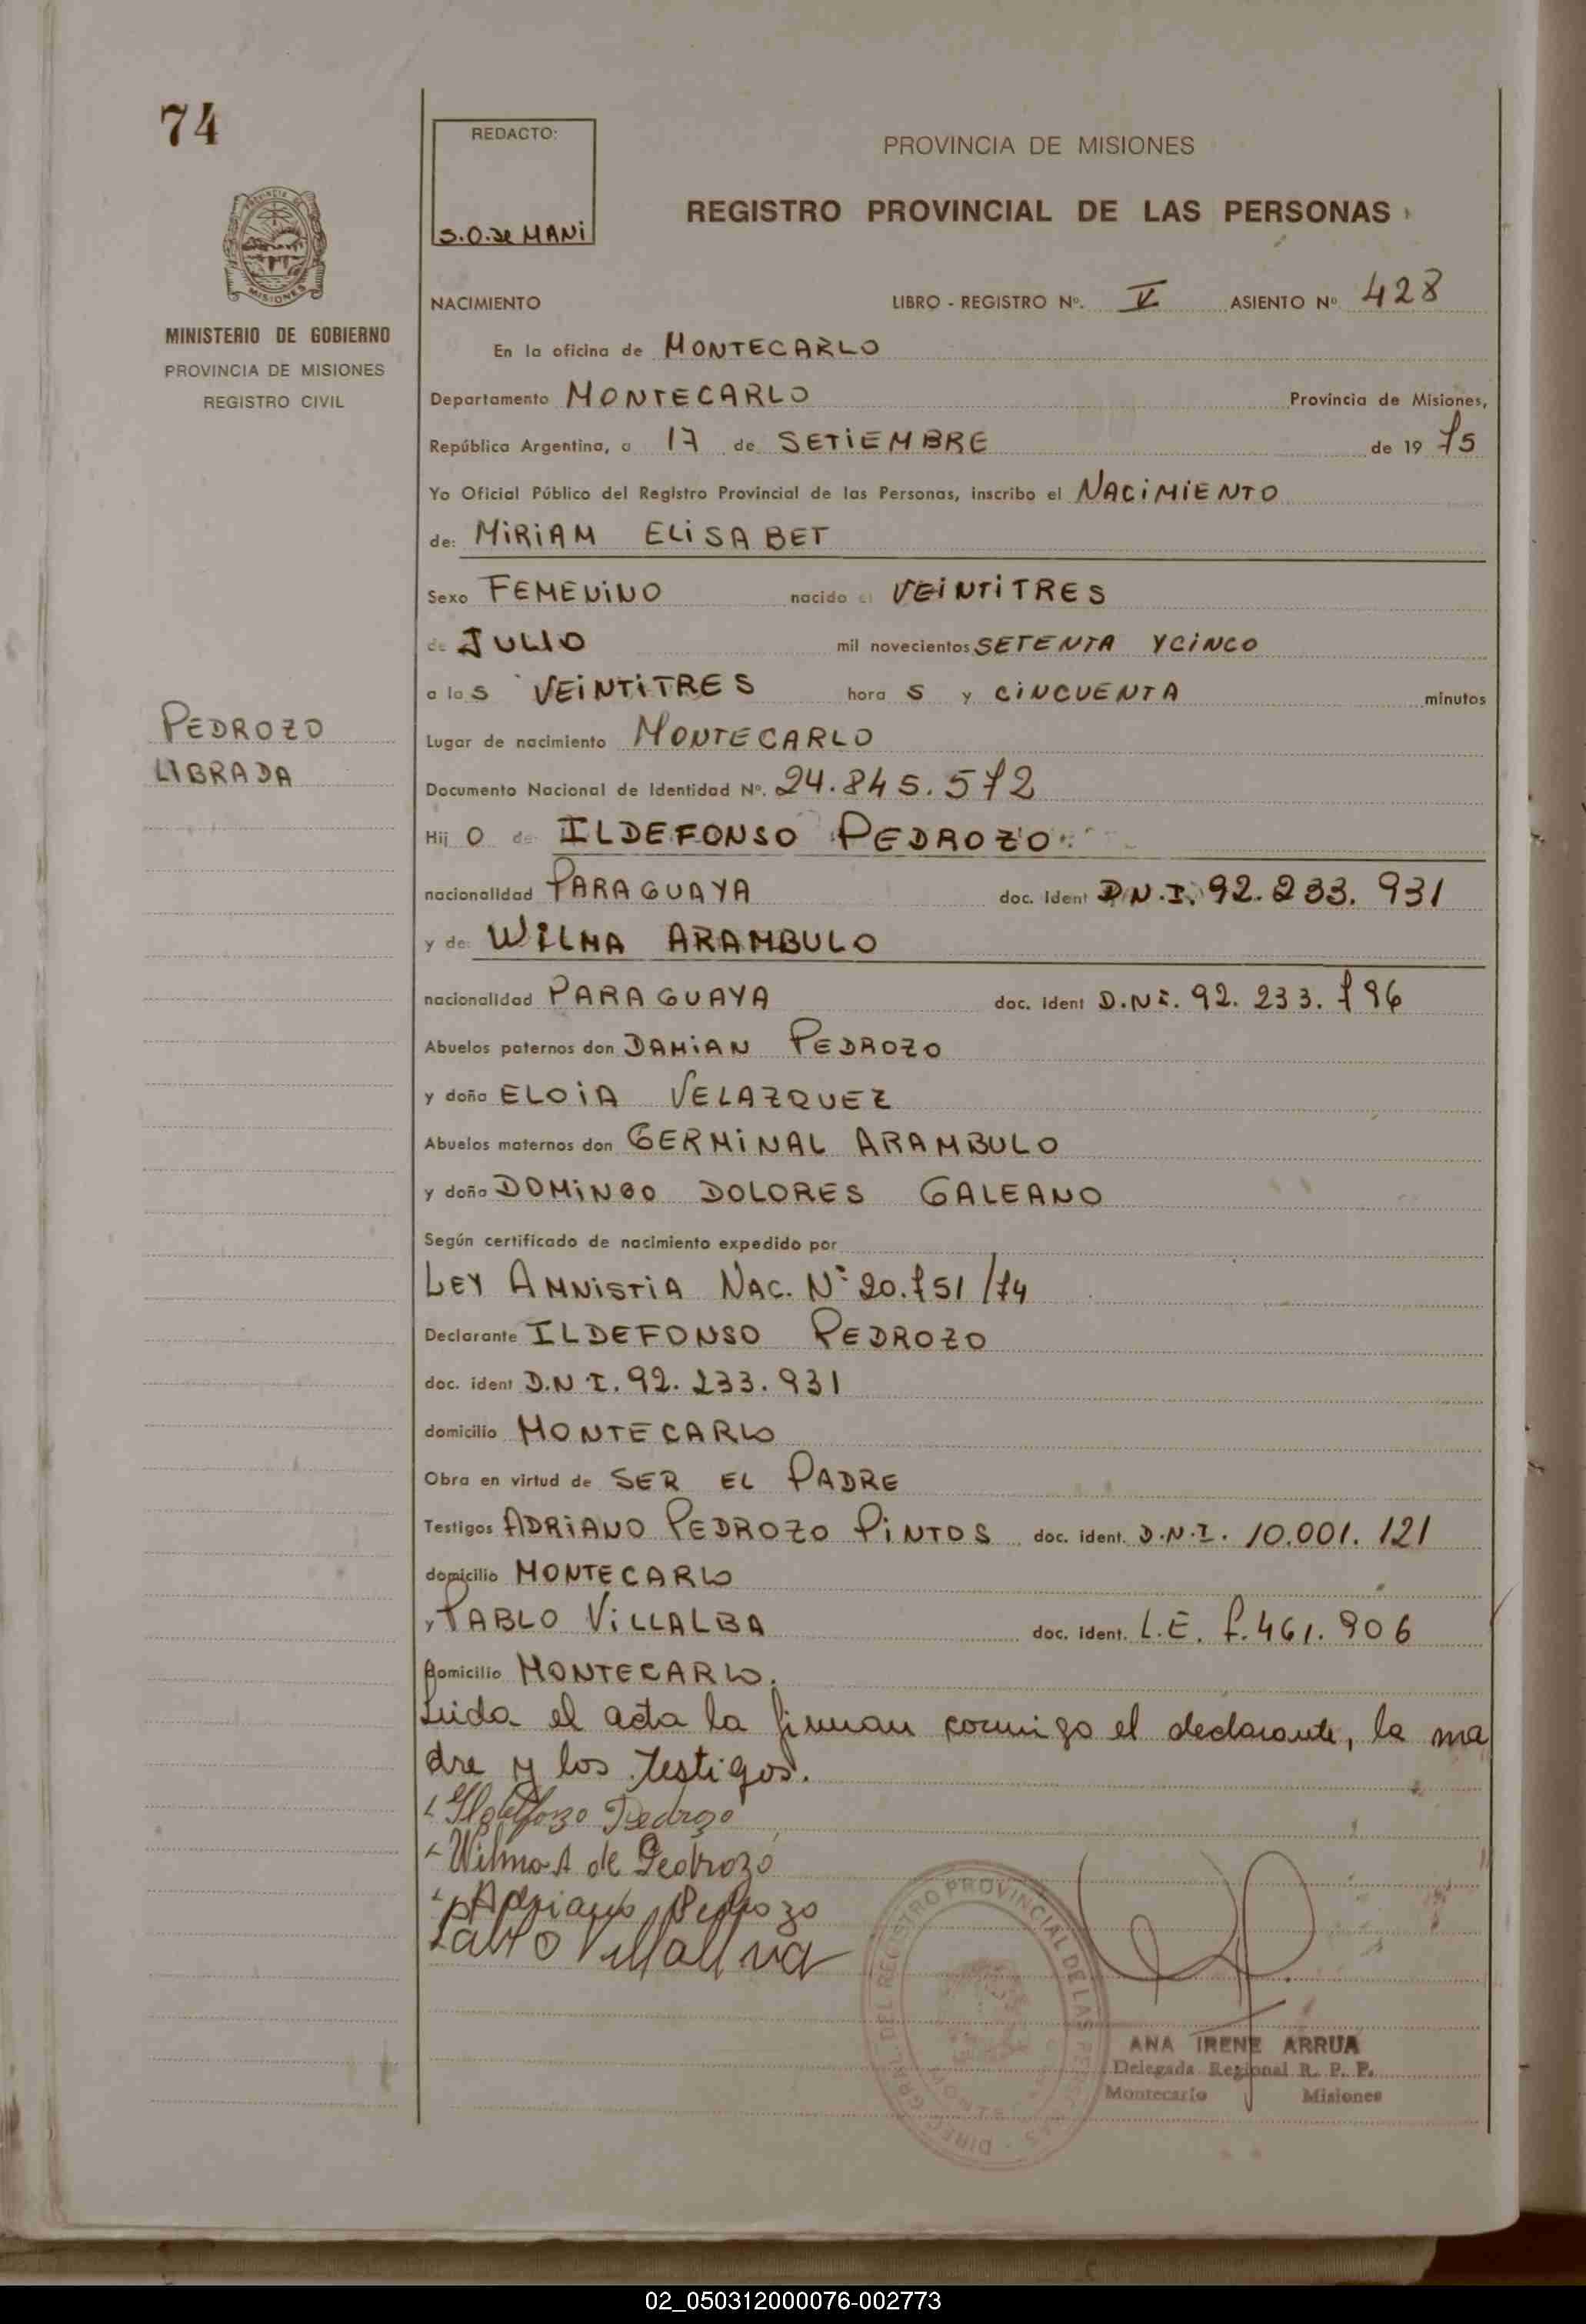 74
REDACTO:
S.O.de MANI
PROVINCIA DE MISIONES
REGISTRO PROVINCIAL DE LAS PERSONAS
MINISTERIO DE GOBIERNO
PROVINCIA DE MISIONES
REGISTRO CIVIL
NACIMIENTO LIBRO - REGISTRO Nº. V ASIENTO Nº 428
En la oficina de MONTECARLO
Departamento MONTECARLO Provincia de Misiones,
República Argentina, a 17 de SETIEMBRE de 19 75
Yo Oficial Público del Registro Provincial de las Personas, inscribo el NACIMIENTO
de: MIRIAM ELISABET
Sexo FEMENINO nacido el VEINTITRES
de JULIO mil novecientos SETENTA YCINCO
a las VEINTITRES horas y CINCUENTA minutos
PEDROZO
LIBRADA
Lugar de nacimiento MONTECARLO
Documento Nacional de Identidad Nº. 24.845.572
Hij O de ILDEFONSO PEDROZO
nacionalidad PARAGUAYA doc. ident D.N.I. 92.233.931
y de: WILMA ARAMBULO
nacionalidad PARAGUAYA doc. ident D.N.I. 92.233.796
Abuelos paternos don DAMIAN PEDROZO
y doña ELOIA VELAZQUEZ
Abuelos maternos don GERMINAL ARAMBULO
y doña DOMINGO DOLORES GALEANO
Según certificado de nacimiento expedido por
LEY AMNISTIA NAC. Nº 20.751/74
Declarante ILDEFONSO PEDROZO
doc. ident D.N.I. 92.233.931
domicilio MONTECARLO
Obra en virtud de SER EL PADRE
Testigos ADRIANO PEDROZO PINTOS doc. ident. D.N.I. 10.001.121
domicilio MONTECARLO
y PABLO VILLALBA doc. ident. L.E. 7.461.906
domicilio MONTECARLO.
Leida el acta la firman conmigo el declarante, la ma
dre y los testigos.
Ildelfonzo Pedrozo
Wilma A de Pedrozo
Adriano Pedrozo
Pablo Villallva
DIREC. GRAL. DEL REGISTRO PROVINCIAL DE LAS PERSONAS
ANA IRENE ARRUA
Delegada Regional R. P. P.
Montecarlo Misiones
02_050312000076-002773